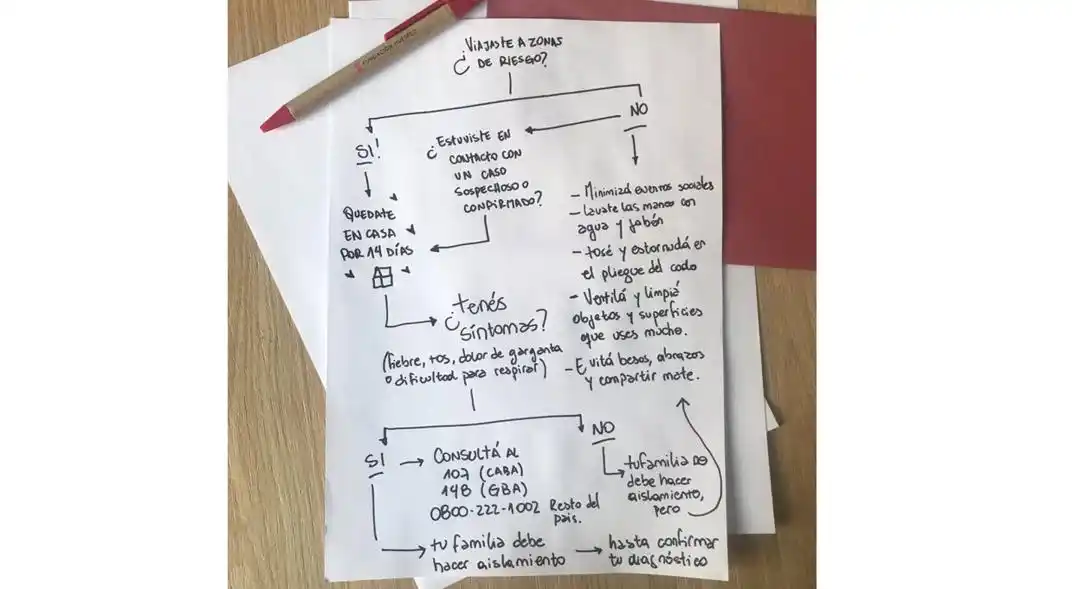 ¿VIAJASTE A ZONAS
DE RIESGO?
SI!
QUEDATE
EN CASA
POR 14 DÍAS
¿ESTUVISTE EN
CONTACTO CON
UN CASO
SOSPECHOSO O
CONFIRMADO?
NO
- Minimizá eventos sociales
- Lavate las manos con
agua y jabón
- tosé y estornudá en
el pliegue del codo
- Ventilá y limpiá
objetos y superficies
que uses mucho.
- Evitá besos, abrazos
y compartir mate.
¿tenés
síntomas?
(fiebre, tos, dolor de garganta
o dificultad para respirar)
SI
CONSULTÁ AL
107 (CABA)
148 (GBA)
0800-222-1002 Resto del
país.
tu familia debe
hacer aislamiento
hasta confirmar
tu diagnóstico
NO
tu familia no
debe hacer
aislamiento,
pero